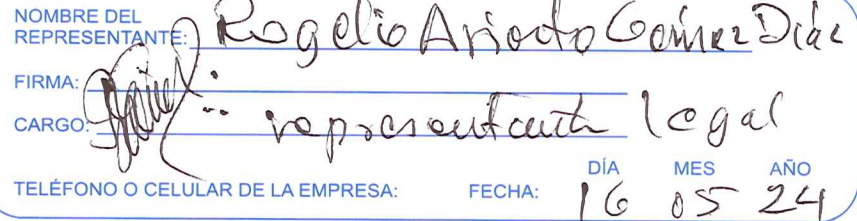 NOMBRE DEL
REPRESENTANTE: Rogelio Ariosto Gómez Díaz
FIRMA:
CARGO: representante legal
DÍA MES AÑO
TELÉFONO O CELULAR DE LA EMPRESA: FECHA: 16 05 24